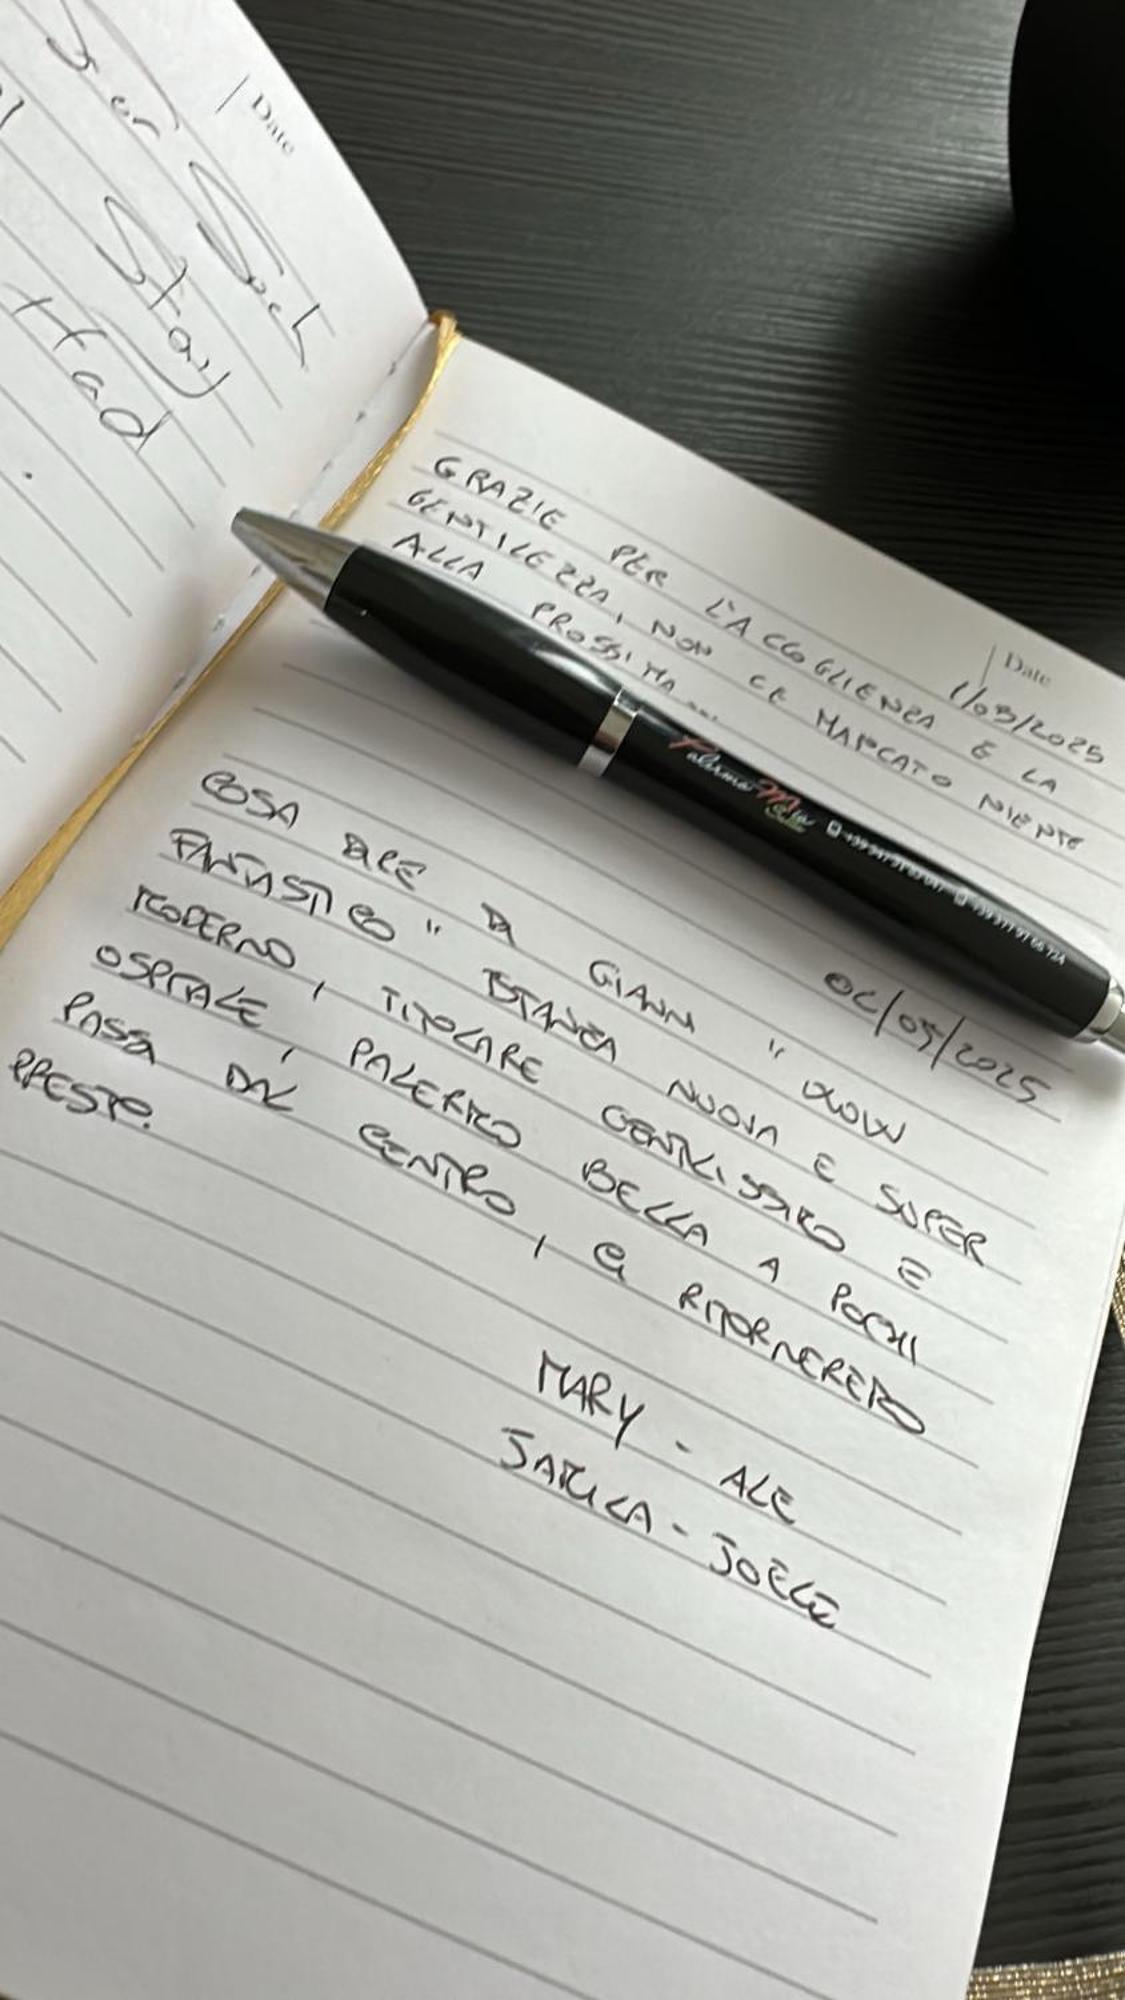 Date
Stay
Had
Date
1/05/2025
GRAZIE PER L'ACCOGLIENZA E LA
GENTILEZZA, NON CE MAPCATO NIENTE
ALLA PROSSIMA ...
Palermo Mia
05/2025
COSA DIRE DI GIANNI " WOW
FANTASTICO " STANZA NUOVA E SUPER
MODERNO, TITOLARE GENTILISSIMO E
OSPITALE, PALERMO BELLA A POCHI
PASSI DAL CENTRO, CI RITORNEREMO
PRESTO.
MARY - ALE
- JOELE